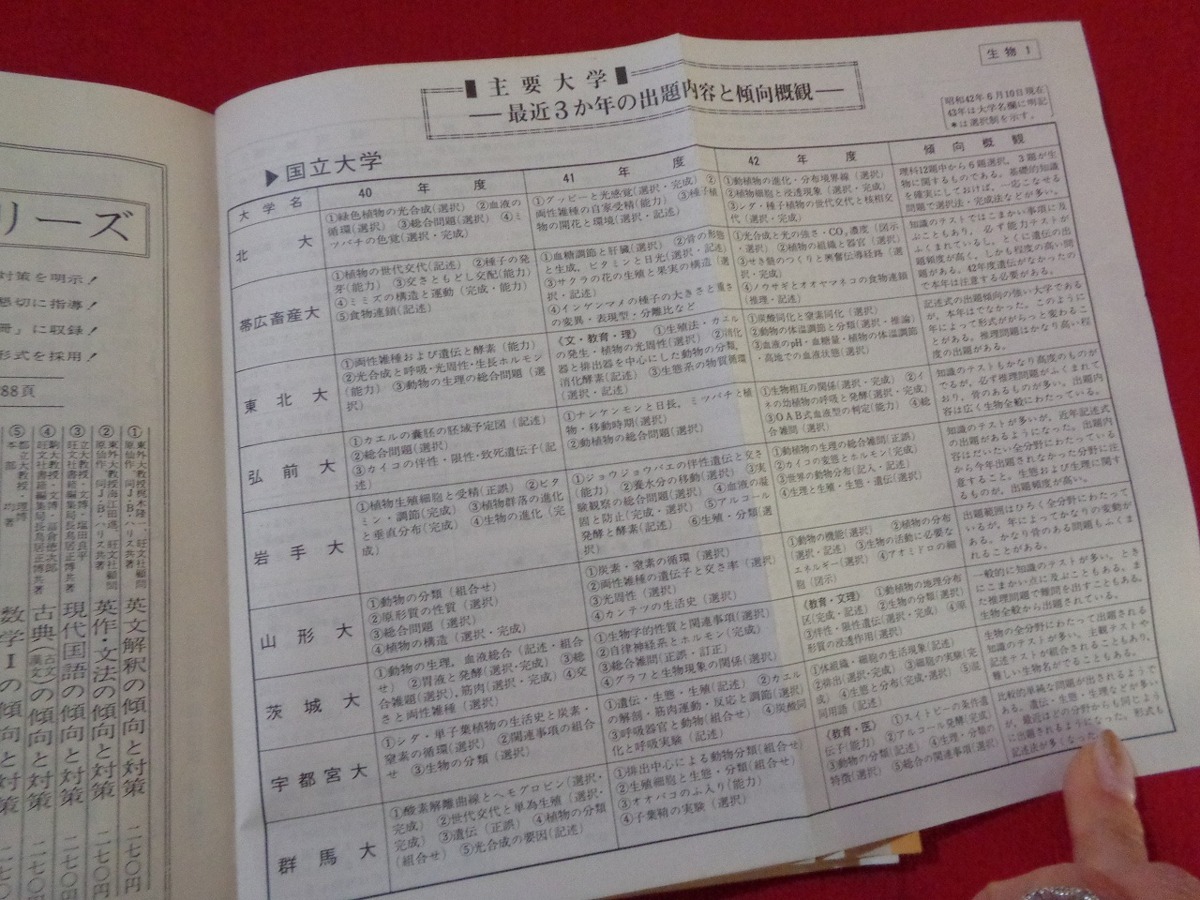 リーズ
対策を明示！
懇切に指導！
冊」に収録！
形式を採用！
88頁
① 英文解釈の傾向と対策 二七〇円
② 英作・文法の傾向と対策 二七〇円
③ 現代国語の傾向と対策 二七〇円
④ 古典(古文漢文)の傾向と対策
⑤ 数学Ⅰの傾向と対策
生物 1
主要大学
―最近3か年の出題内容と傾向概観―
昭和42年6月10日現在
43年は大学名欄に明記
＊は選択制を示す。
▶国立大学
大学名
40 年度
41 年度
42 年度
傾向概観
北大
①緑色植物の光合成(選択) ②血液の
循環(選択) ③総合問題(選択) ④ミ
ツバチの色覚(選択・完成)
①グッピーと光感覚(選択・完成) ②
両性雑種の自家受精(能力) ③種子植
物の開花と環境(選択・記述)
①動植物の進化・分布境界線(選択)
②植物細胞と浸透現象(選択・完成)
③シダ・種子植物の世代交代と核相交
代(選択・完成)
理科12題中から6題選択，3題が生
物に関するものである。基礎的知識
を確実にしておけば，一応こなせる
問題で選択法・完成法などが多い。
帯広畜産大
①植物の世代交代(記述) ②種子の発
芽(能力) ③交さともどし交配(能力)
④ミミズの構造と運動(完成・能力)
⑤食物連鎖(記述)
①血糖調節と肝臓(選択) ②骨の形態
と生成，ビタミンと日光(選択・記述)
③サクラの花の生殖と果実の構造(選
択・記述)
④インゲンマメの種子の大きさと重さ
の変異・表現型・分離比など
①光合成と光の強さ・CO₂濃度(図示
・選択) ②植物の組織と器官(選択)
③せき髄のつくりと興奮伝導経路(選
択・完成)
④ノウサギとオオヤマネコの食物連鎖
(推理・記述)
知識のテストではこまかい事項に及
ぶこともあり，必ず能力テストが
ふくまれているし，とくに遺伝の出
題頻度が高く，しかも程度の高い問
題がある。42年度遺伝がなかったの
で本年は注意する必要がある。
東北大
①両性雑種および遺伝と酵素(能力)
②光合成と呼吸・光周性・生長ホルモン
(能力) ③動物の生理の総合問題(選
択)
《文・教育・理》 ①生殖法・カエル
の発生・植物の光周性(選択) ②消化
器と排出器を中心にした動物の分類，
消化酵素(記述) ③生態系の物質循環
(選択・記述)
①炭酸同化と窒素同化(選択)
②動物の体温調節と分類(選択・推論)
③血液のpH・血糖量・植物の体温調節
・高地での血液状態(選択)
記述式の出題傾向の強い大学である
が，本年はでなかった。このように
年によって形式ががらっと変わるこ
とがある。推理問題はかなり高い程
度の出題がある。
弘前大
①カエルの嚢胚の胚域予定図(記述)
②総合問題(選択)
③カイコの伴性・限性・致死遺伝子(記
述)
①ナンゲンモンと日長，ミツバチと植
物・移動時期(選択)
②動植物の総合問題(選択)
①生物相互の関係(選択・完成) ②イ
ネの幼植物の呼吸と発酵(選択・完成)
③OAB式血液型の判定(能力) ④総
合雑問(選択)
知識のテストもかなり高度のものが
でるが，必ず推理問題がふくまれて
おり，骨のあるものが多い。出題内
容は広く生物全般にわたっている。
岩手大
①植物生殖細胞と受精(正誤) ②ビタ
ミン・調節(完成) ③植物群落の進化
と垂直分布(完成) ④生物の進化(完
成)
①ジョウジョウバエの伴性遺伝と交さ
(能力) ②養水分の移動(選択) ③実
験観察の総合問題(選択) ④血液の凝
固と防止(完成・選択) ⑤アルコール
発酵と酵素(記述) ⑥生殖・分類(選
択)
①動植物の生理の総合雑問(正誤)
②カイコの変態とホルモン(完成)
③世界の動物分布(記入・記述)
④生理と生殖・生態・遺伝(選択)
知識のテストが多いが，近年記述式
の出題があるようになった。出題内
容はだいたい全分野にわたっている
から今年出題されなかった分野に注
意すること。生態および生理に関す
るものが，出題頻度が高い。
山形大
①動物の分類(組合せ)
②原形質の性質(選択)
③総合問題(選択)
④植物の構造(選択・完成)
①炭素・窒素の循環(選択)
②両性雑種の遺伝子と交さ率(選択)
③光周性(選択)
④カンテツの生活史(選択)
①動物の機能(選択) ②植物の分布
(選択・記述) ③生物の活動に必要な
エネルギー(選択) ④アオミドロの細
胞(図示)
出題範囲はひろく全分野にわたって
いるが，年によってかなりの変動が
ある。かなり骨のある問題もふくま
れることがある。
茨城大
①動物の生理，血液総合(記述・組合
せ) ②胃液と発酵(選択・完成) ③総
合雑題(選択)，筋肉(選択・完成) ④交
さと両性雑種(選択)
①生物学的性質と関連事項(選択)
②自律神経系とホルモン(完成)
③総合雑問(正誤・訂正)
④グラフと生物現象の関係(選択)
《教育・文理》 ①動植物の地理分布
区(完成・記述) ②生物の分類(選択)
③伴性・限性遺伝(選択・完成) ④原
形質の浸透作用(選択)
一般的に知識のテストが多い。とき
にこまかい点に及ぶこともある。ま
た推理問題で難問を出すこともある。
生物全般から出題されている。
宇都宮大
①シダ・単子葉植物の生活史と炭素・
窒素の循環(選択) ②関連事項の組合
せ ③生物の分類(選択)
①遺伝・生態・生殖(記述) ②カエル
の解剖・筋肉運動・反応と調節(選択)
③呼吸器官と動物(組合せ) ④炭酸同
化と呼吸実験(記述)
①体組織・細胞の生活現象(記述)
②排出(選択・完成) ③細胞の実験(完
成) ④生態と分布(完成・選択)
同用語(記述)
生物の全分野にわたって出題される
知識のテストが多い。主観テストや
記述テストが組合されることもあり，
難しい生物名がでることもある。
群馬大
①酸素解離曲線とヘモグロビン(選択・
完成) ②世代交代と単為生殖(選択・
完成) ③遺伝(正誤) ④植物の分類
(組合せ) ⑤光合成の要因(記述)
①排出中心による動物分類(組合せ)
②生殖細胞と生態・分類(組合せ)
③オオバコのふ入り(能力)
④子葉鞘の実験(選択)
《教育・医》 ①スイトピーの条件遺
伝子(能力) ②アルコール発酵(完成)
③動物の分類(記述) ④生理・分類の
特徴(選択) ⑤総合の関連事項(選択)
比較的単純な問題が出されるようで
ある。遺伝・生態・生理などが多い
が，最近はどの分野からも同じよう
に出題されるようになった。形式も
記述法が多くなった